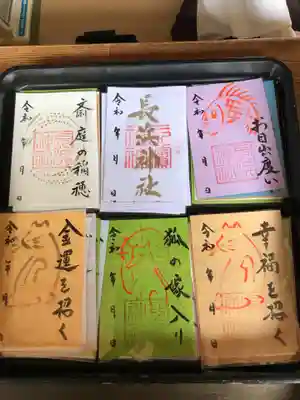 斎庭の稲穂
令和 年 月 日
長浜神社
令和 年 月 日
お目出度い
令和 年 月 日
金運を招く
令和 年 月 日
狐の嫁入り
令和 年 月 日
幸福を招く
令和 年 月 日